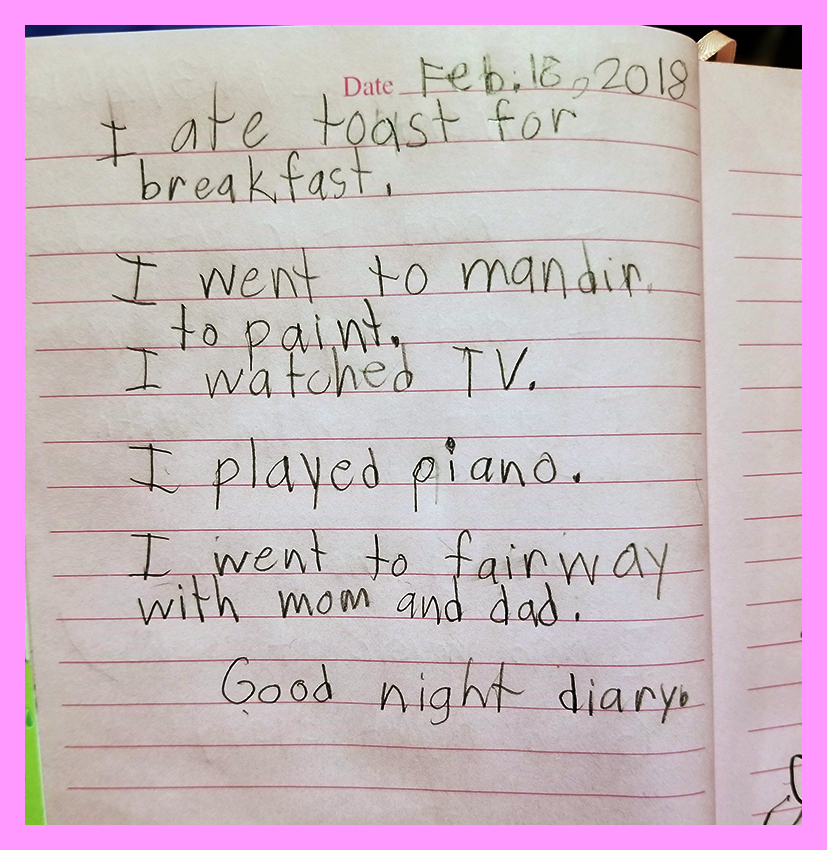 Date Feb. 18, 2018
I ate toast for
breakfast.
I went to mandir.
to paint.
I watched TV.
I played piano.
I went to fairway
with mom and dad.
Good night diary.